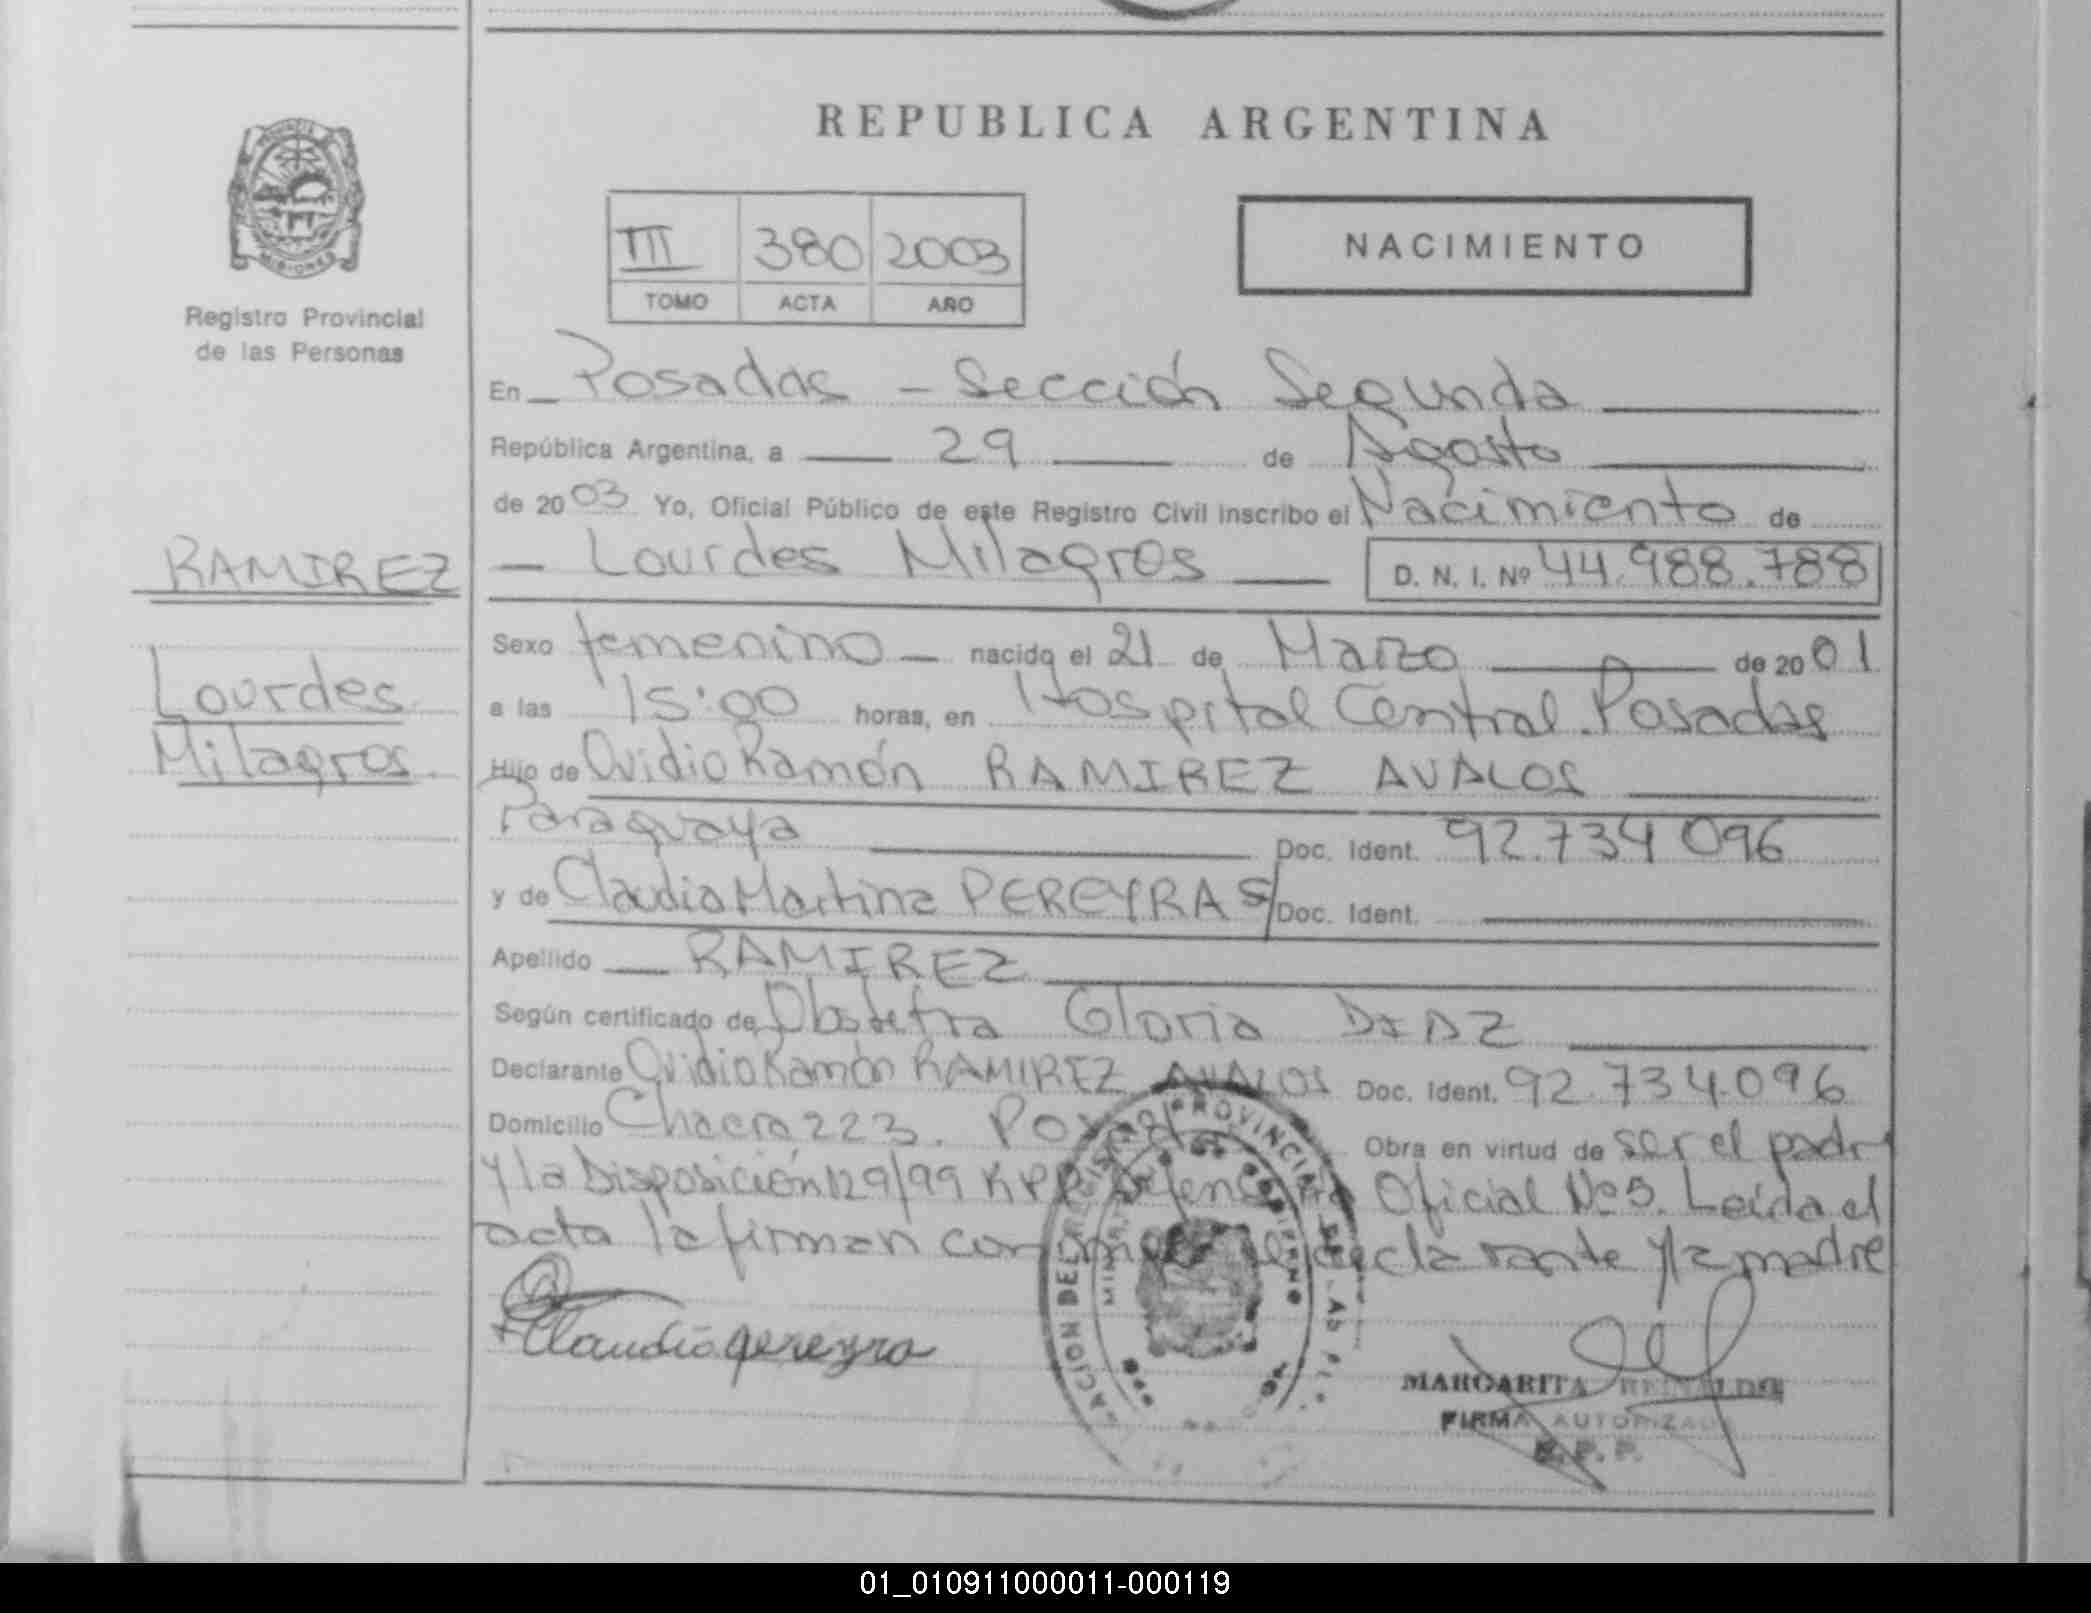 REPUBLICA ARGENTINA
MISIONES
Registro Provincial
de las Personas
III 380 2003
TOMO ACTA AÑO
NACIMIENTO
En Posadas - Sección Segunda
República Argentina, a 29 de Agosto
de 2003 Yo, Oficial Público de este Registro Civil inscribo el Nacimiento de
RAMIREZ
Lourdes Milagros D. N. I. Nº 44.988.788
Lourdes
Milagros
Sexo femenino nacido el 21 de Marzo de 2001
a las 15:00 horas, en Hospital Central. Posadas
Hijo de Ovidio Ramón RAMIREZ AVALOS
Paraguaya Doc. Ident. 92.734 096
y de Claudia Martina PEREYRA S/ Doc. Ident.
Apellido RAMIREZ
Según certificado de Obstetra Gloria DIAZ
Declarante Ovidio Ramón RAMIREZ AVALOS Doc. Ident. 92.734.096
Domicilio Chacra 223. Obra en virtud de ser el padre
y la Disposición 129/99 Oficial Nº 5. Leída el
acta la firman declarante y la madre
Claudia pereyra
MARGARITA REINALDO
FIRMA AUTORIZADA
R. P. P.
01_010911000011-000119